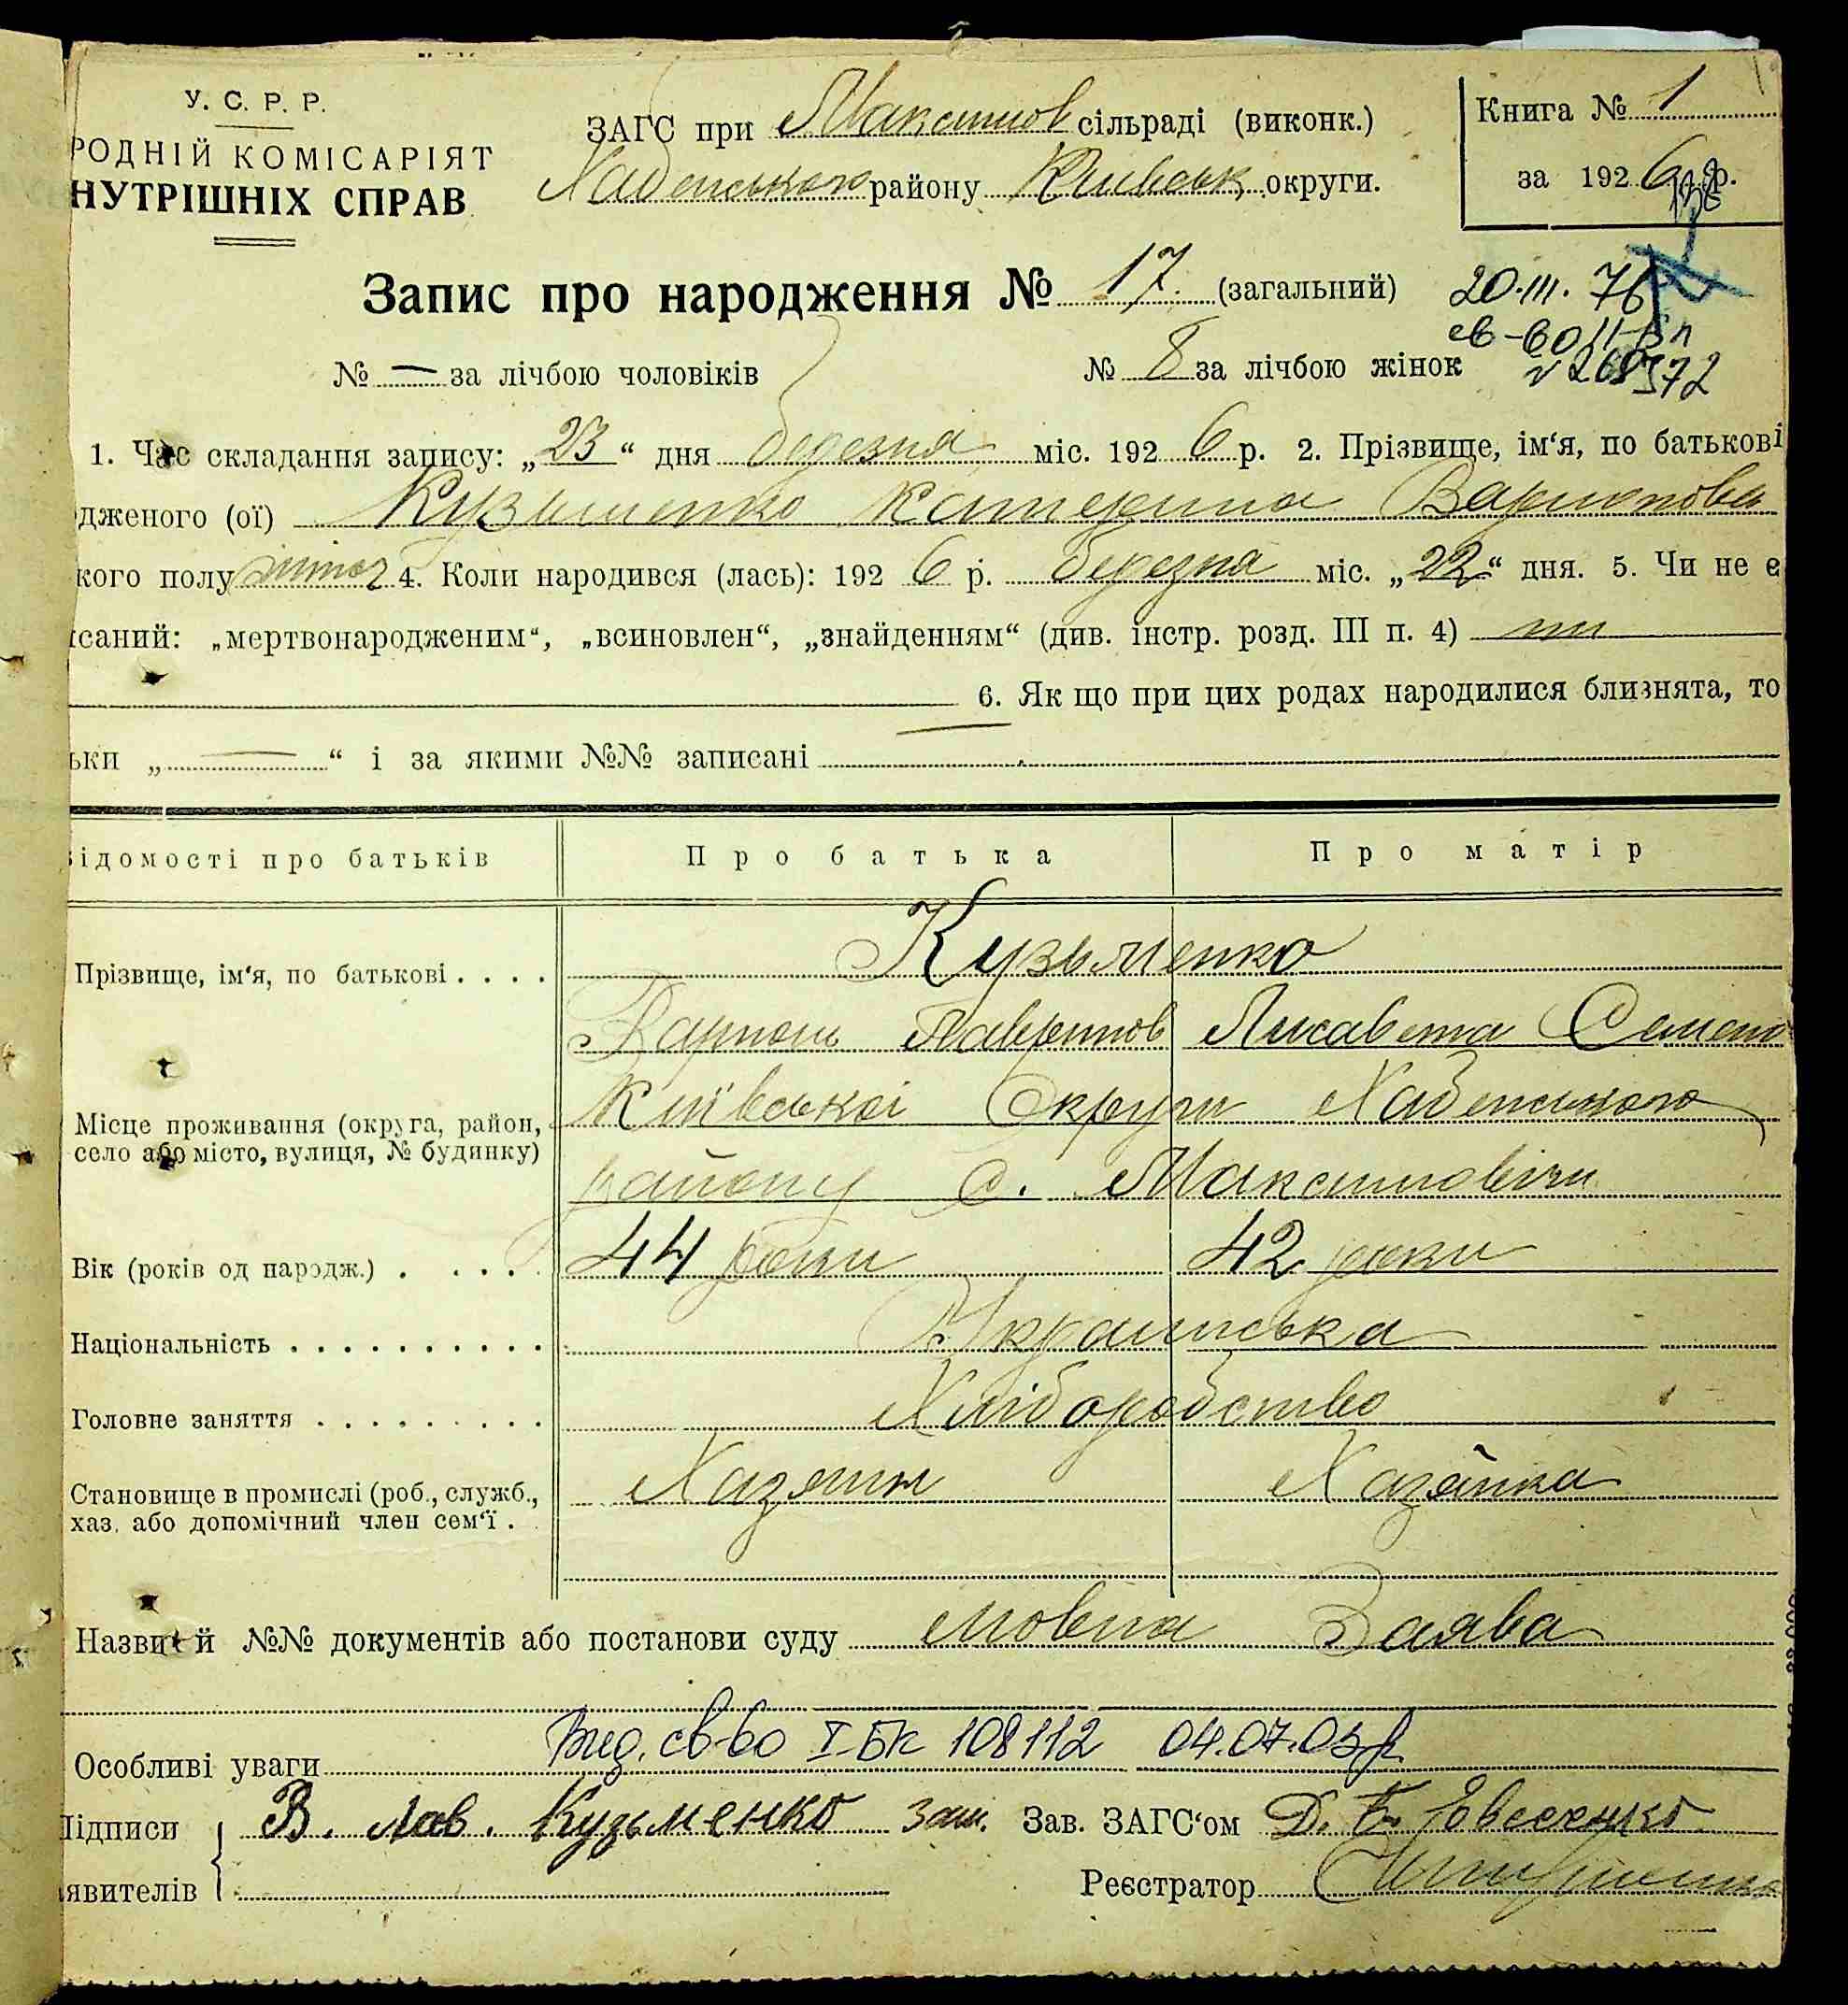 У. С. Р. Р.
РОДНІЙ КОМІСАРІЯТ
НУТРІШНІХ СПРАВ
ЗАГС при Максимов сільраді (виконк.)
Хабенського району Київськ округи.
Книга № 1
за 1926 р.
Запис про народження № 17. (загальний)
20.III.76
№ — за лічбою чоловіків
№ 8 за лічбою жінок
1. Час складання запису: „23“ дня березня міс. 1926 р. 2. Прізвище, ім‘я, по батькові
дженого (ої) Кузьменко Катерина Вармонова
кого полу жіноч 4. Коли народився (лась): 1926 р. березня міс. „22“ дня. 5. Чи не є
исаний: „мертвонародженим“, „всиновлен“, „знайденням“ (див. інстр. розд. III п. 4) ни
6. Як що при цих родах народилися близнята, то
ьки „ — “ і за якими №№ записані
ідомості про батьків
Про батька
Про матір
Прізвище, ім‘я, по батькові . . . .
Кузьменко
Лаврінов Лисавета Семено
Місце проживання (округа, район,
село або місто, вулиця, № будинку)
Київської Округи Хабенського
району с. Максимовичи
Вік (років од народж.) . . . .
44 роки
42 роки
Національність . . . . . . . . . .
Українська
Головне заняття . . . . . . . . .
Хліборобство
Становище в промислі (роб., служб.,
хаз. або допомічний член сем‘ї .
Хазяин
Хазяйка
Назви й №№ документів або постанови суду мовна Заява
Особливі уваги Вид. св-во I-БК 108112 04.07.03р
Підписи
В. Лав. Кузьменко
зам. Зав. ЗАГС‘ом Д. Б. Євсеенко
явителів
Реєстратор